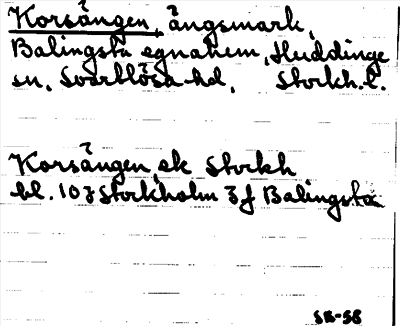 Korsängen, ängsmark,
Balingsta egnahem, Huddinge
sn, Svartlösa hd, Stockh. l.
Korsängen, ek Stockh
bl. 10 7 Stockholm 7 f Balingsta
SB-58